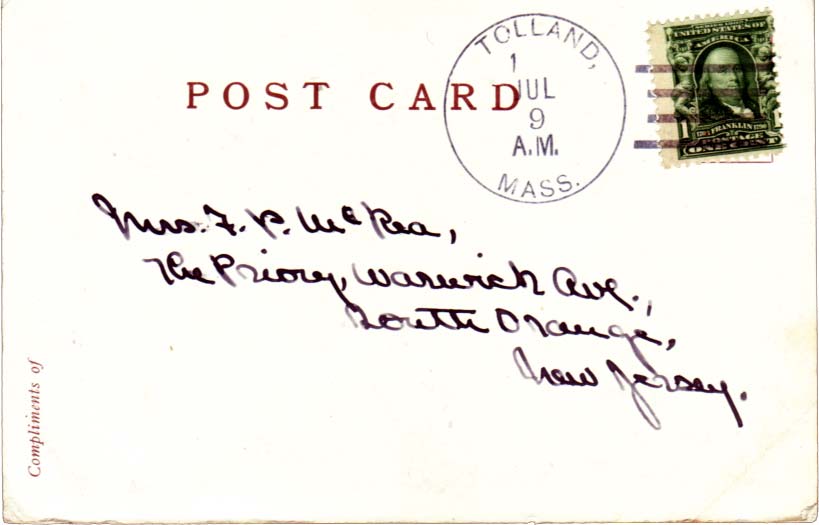 SERIES 1902
UNITED STATES OF
AMERICA
1706 FRANKLIN 1790
1
POSTAGE
ONE CENT
TOLLAND,
1
JUL
9
A.M.
MASS.
POST CARD
Mrs. F. P. McRea,
The Priory, Warwick Ave.,
South Orange,
New Jersey.
Compliments of